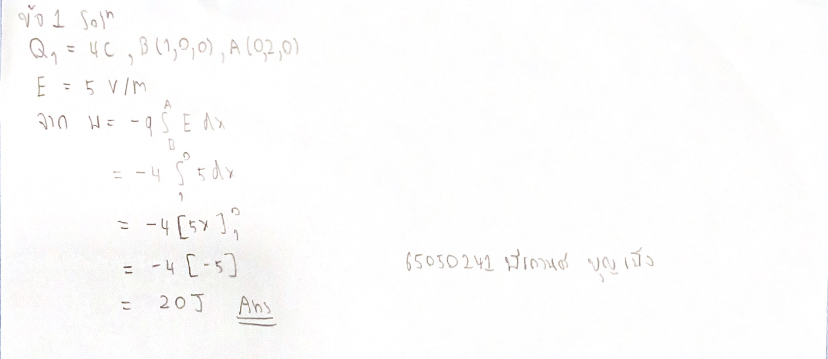 ข้อ 1 Solⁿ
Q₁ = 4C , B(1,0,0) , A(0,2,0)
E = 5 V/m
จาก W = -q∫_B^A E dx
= -4 ∫₁⁰ 5dx
= -4 [5x]₁⁰
= -4 [-5]
= 20J Ans
65050241 บุญเป็ง